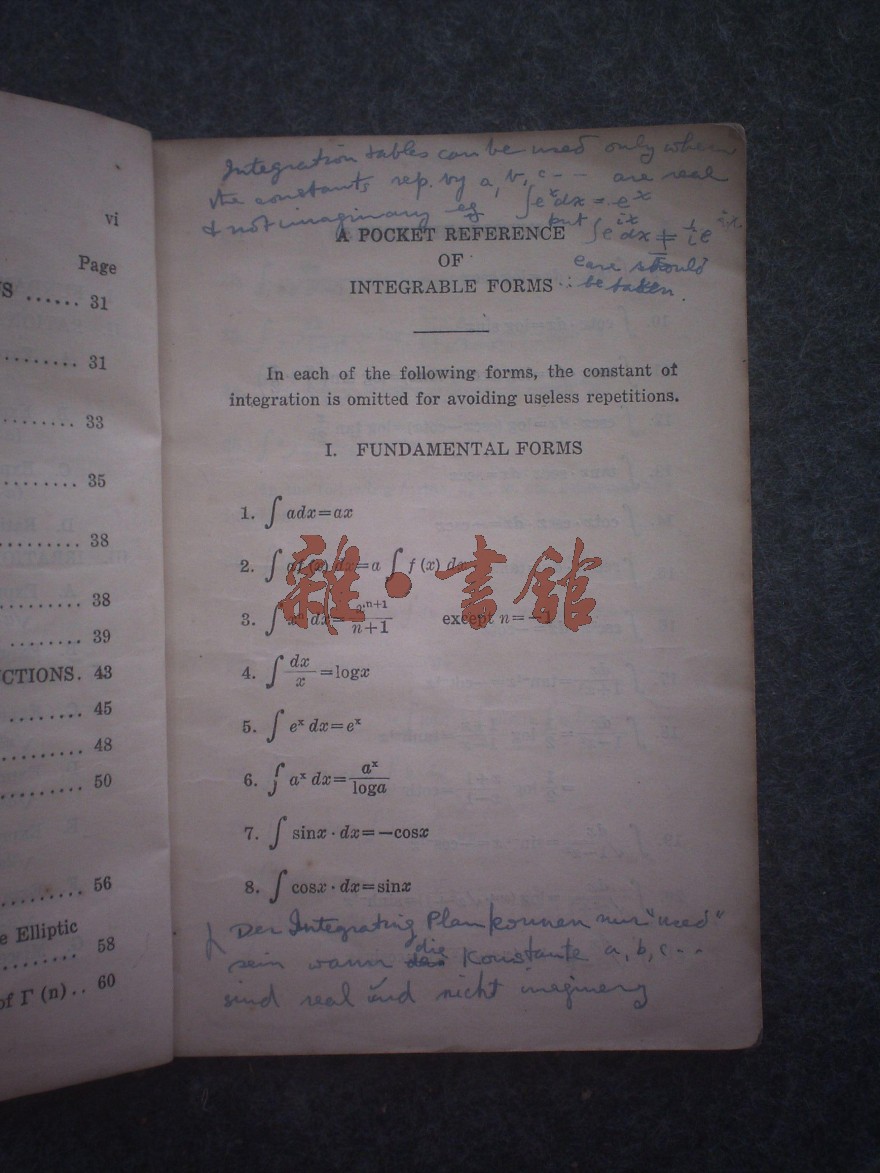 vi
Page
NS ...... 31
......... 31
......... 33
......... 35
......... 38
......... 38
......... 39
CTIONS. 43
......... 45
......... 48
......... 50
......... 56
e Elliptic
......... 58
of Γ (n).. 60
Integration tables can be used only when
the constants rep. by a, b, c -- are real
& not imaginary eg ∫eˣdx = eˣ
but ∫e^{ix}dx ≠ 1/i e^{ix}
care should
∴ be taken.
A POCKET REFERENCE
OF
INTEGRABLE FORMS
In each of the following forms, the constant of
integration is omitted for avoiding useless repetitions.
I. FUNDAMENTAL FORMS
1. ∫ adx=ax
2. ∫ af (x) dx=a ∫ f (x) dx
3. ∫ xⁿ dx= xⁿ⁺¹/n+1 except n=−1
4. ∫ dx/x =logx
5. ∫ eˣ dx=eˣ
6. ∫ aˣ dx= aˣ/loga
7. ∫ sinx · dx=−cosx
8. ∫ cosx · dx=sinx
雜·書館
Der Integrating Plan konnen nur "used"
sein wann die Konstante a, b, c --
sind real und nicht imaginery